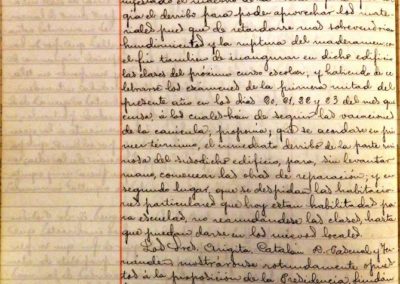 gía el derribo para poder aprovechar los mate-
riales pues que de retardarse mas sobrevendria
hundimientos y la ruptura del maderamen con
el fin tambien de inaugurar en dicho edificio
las clases del próximo curso escolar, y habiendo de ce-
lebrarse los exámenes de la primera mitad del
presente año en los dias 20, 21, 22 y 23 del mes que
cursa, á los cuales han de seguir las vacaciones
de la canícula, proponia, que se acordase en pri-
mer término, el inmediato derribo de la parte rui-
nosa del susodicho edificio, para, sin levantar
mano, comenzar las obras de reparación, y en
segundo lugar, que se despidan las habitacio-
nes particulares que hoy estan habilitadas pa-
ra escuelas, no reanundandose las clases, hasta
que puedan darse en los nuevos locales.
Los Sres. Catalán Pascual y Fer-
nández mostráronse rotundamente opues-
tos á la proposición de la Presidencia fundán